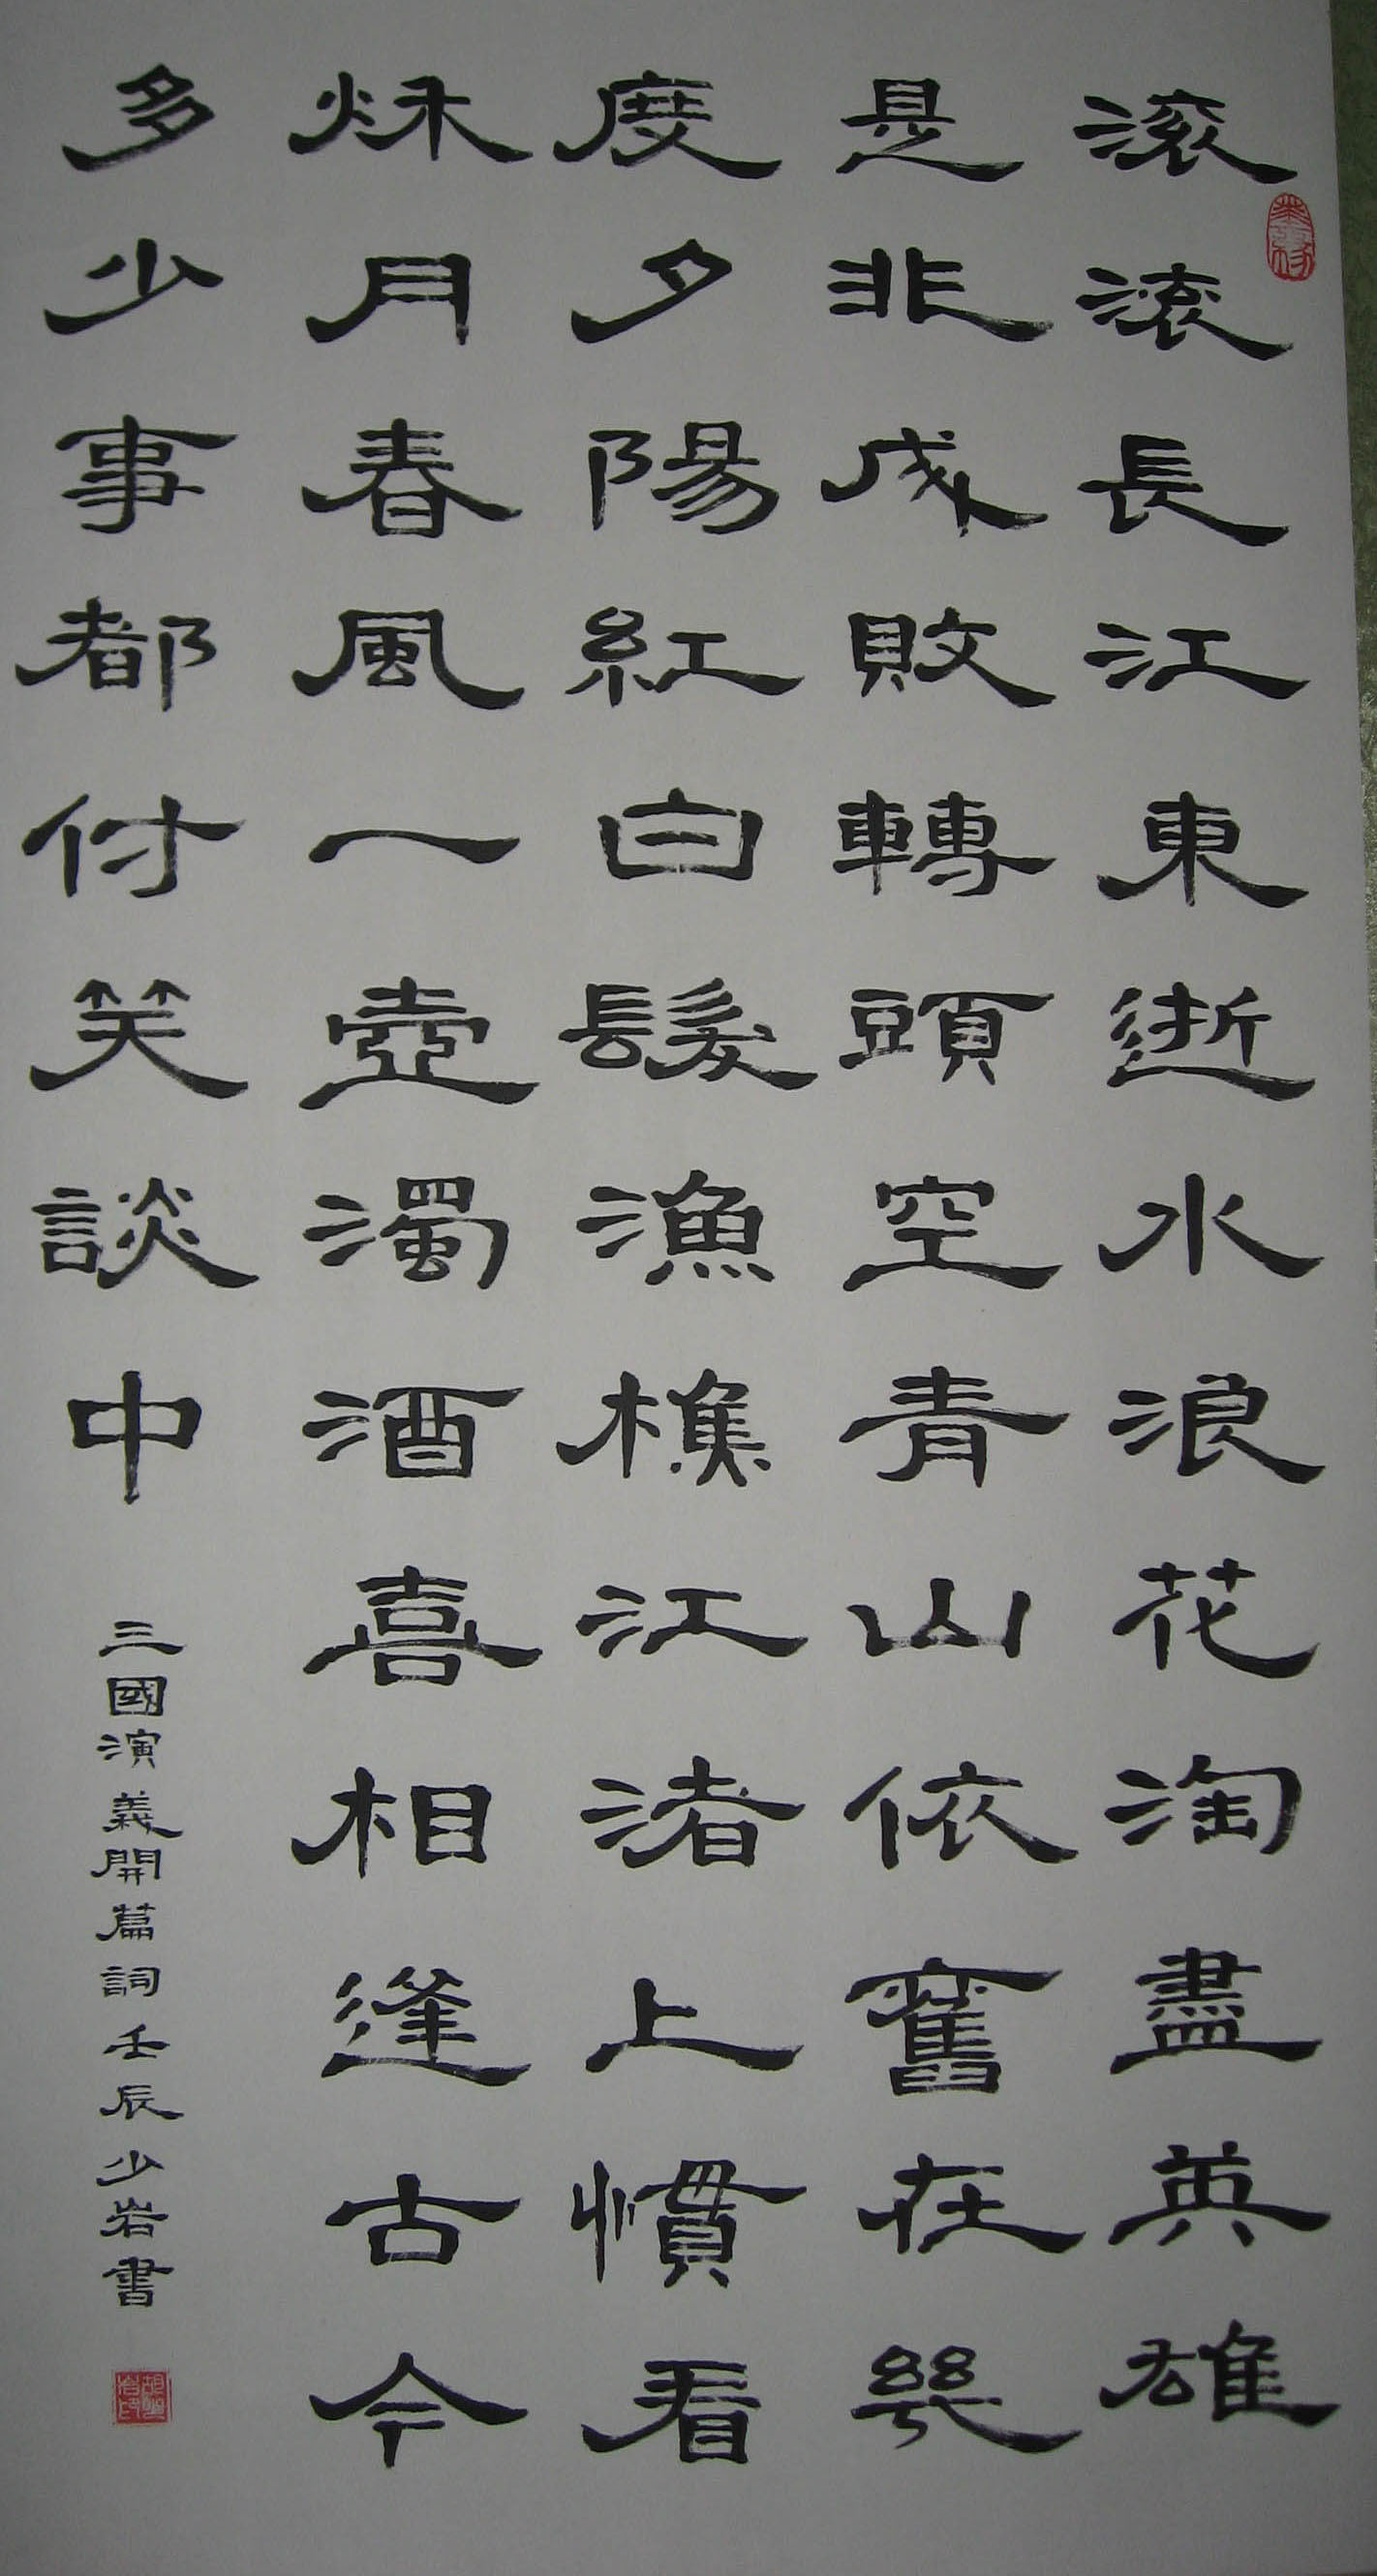 滚滚長江東逝水浪花淘盡英雄
是非成敗轉頭空青山依舊在幾
度夕陽紅白髮漁樵江渚上慣看
秌月春風一壺濁酒喜相逢古今
多少事都付笑談中
三國演義開篇詞壬辰少岩書